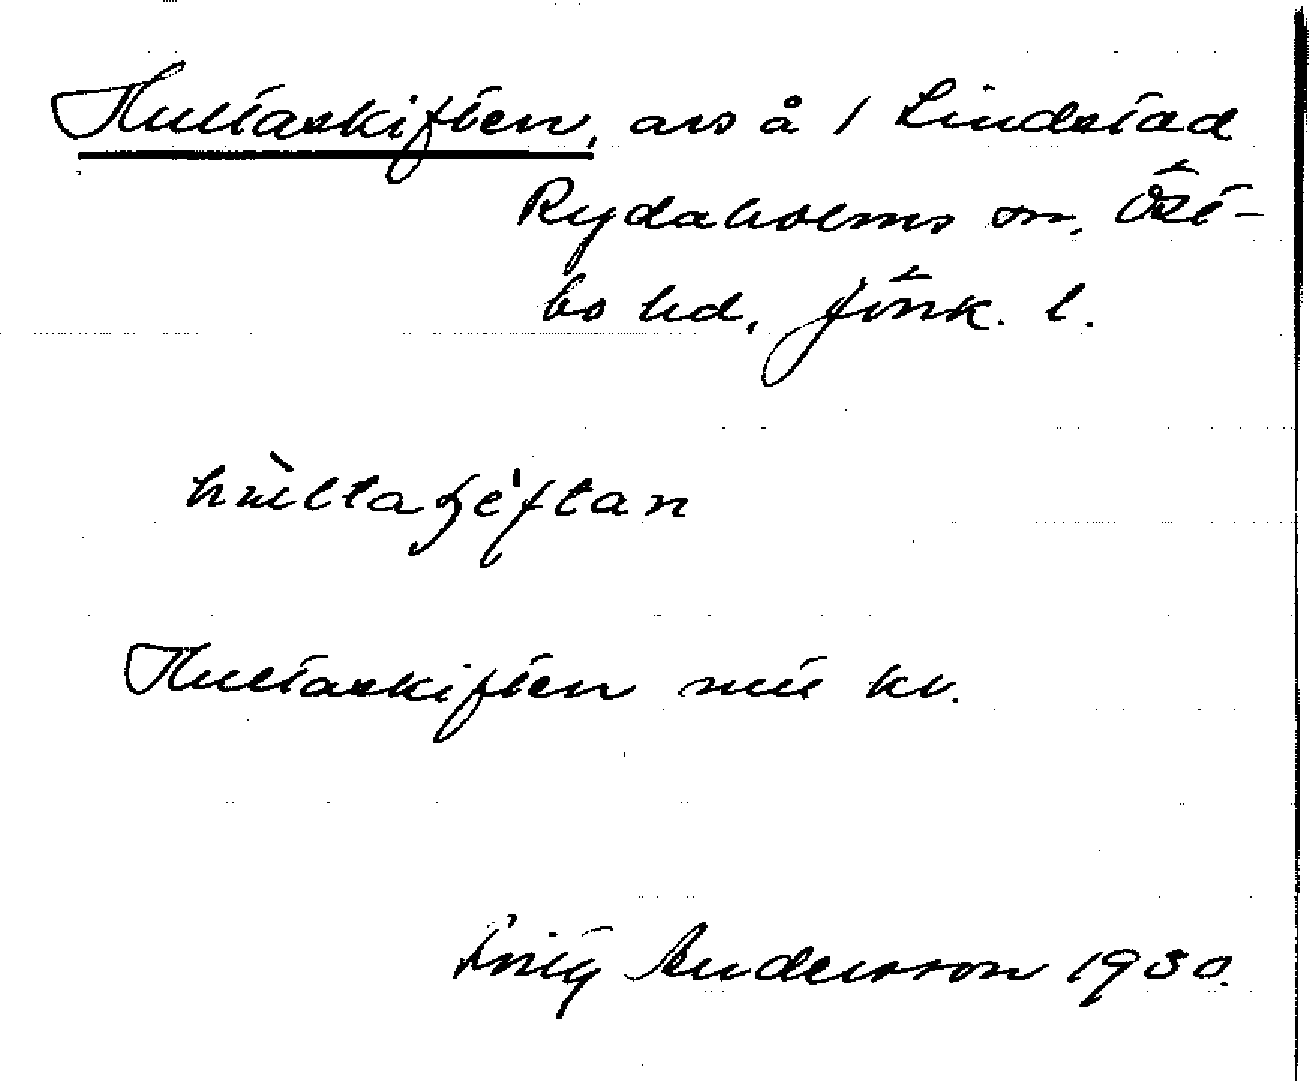 Hultaskiften, avs å 1 Lindstad
Rydaholms sn, Öst-
bo hd, Jönk. l.
hultaʃeftan
Hultaskiften mit kv.
Andersson 1930.